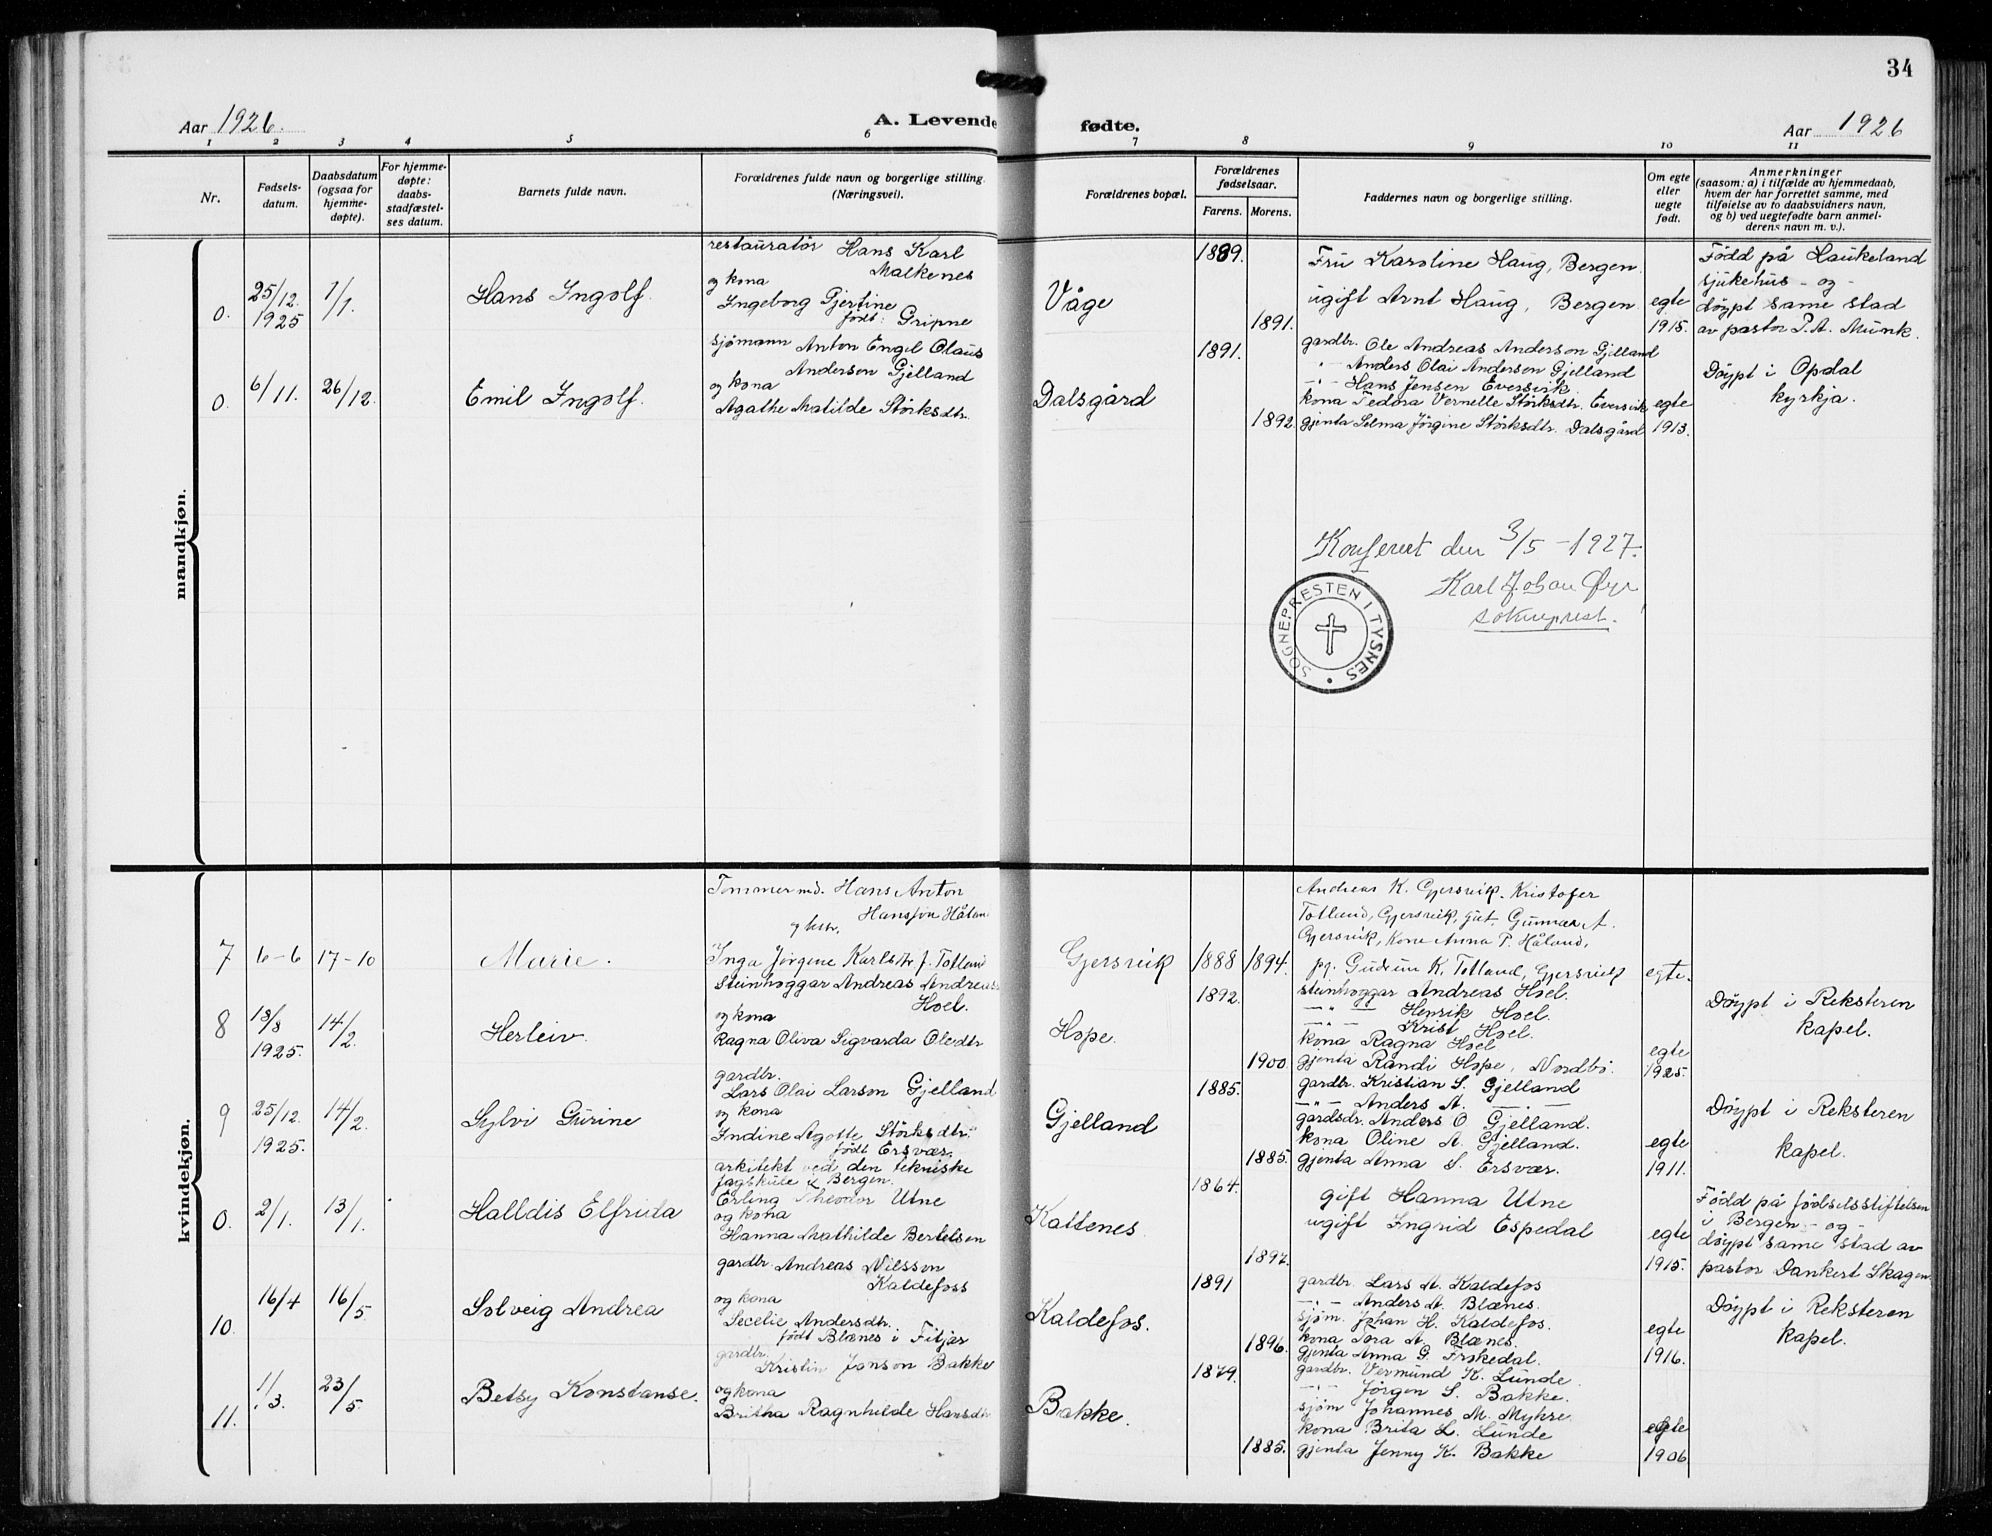 34
Aar 1926.
A. Levende fødte.
Aar 1926
1 2 3 4 5 6 7 8 9 10 11
Nr.
Fødsels-
datum.
Daabsdatum
(ogsaa for
hjemme-
døpte).
For hjemme-
døpte:
daabs-
stadfæstel-
ses datum.
Barnets fulde navn.
Forældrenes fulde navn og borgerlige stilling
(Næringsvei).
Forældrenes bopæl.
Forældrenes
fødselsaar.
Farens. Morens.
Faddernes navn og borgerlige stilling.
Om egte
eller
uegte
født.
Anmerkninger
(saasom: a) i tilfælde av hjemmedaab,
hvem der har forrettet samme, med
tilføielse av to daabsvidners navn,
og b) ved uegtefødte barn anmel-
derens navn m. v.).
mandkjøn.
0.
25/12.
1925
1/1.
Hans Ingolf.
restauratør Hans Karl
Malkenes
og kona
Ingeborg Gjertine
født: Gripne
Våge
1889.
1891.
Fru Karoline Haug, Bergen.
ugift Arnt Haug, Bergen
egte
1915.
Fødd på Haukeland
sjukehus - og -
døypt same stad
av pastor P. A. Munk.
0.
6/11.
26/12.
Emil Ingolf.
sjømann Anton Engel Olaus
Anderson Gjelland
og kona
Agathe Matilde Størksdtr.
Dalsgård
1891.
1892.
gardbr. Ole Andreas Anderson Gjelland
- " - Anders Olai Anderson Gjelland
- " - Hans Jensen Eversvik.
kona Fedora Vernelle Størksdtr. Eversvik
gjenta Selma Jørgine Størksdtr. Dalsgård
egte
1913.
Døypt i Opdal
kyrkja.
Konferert den 3/5 - 1927.
Karl Johan Øyr
sokneprest.
SOGNEPRESTEN I TYSNES
kvindekjøn.
7
6-6
17-10
Marie.
Tømmermd. Hans Anton
Hansson Håland
og kstr.
Inga Jørgine Karlsdtr f. Totland
Gjersvik
1888
1894.
Andreas K. Gjersvik. Kristofer
Totland, Gjersvik, gut. Gunnar A.
Gjersvik, Kone Anna P. Håland,
pg. Gudrun K. Totland, Gjersvik
egte.
8
13/8
1925.
14/2.
Herleiv.
Steinhoggar Andreas Andreass.
Hoel.
og kona
Ragna Oliva Sigvarda Olesdtr
Hope.
1892.
1900.
steinhoggar Andreas Hoel.
- " - Henrik Hoel.
- " - Krist Hoel.
kona Ragna Hoel
gjenta Randi Hope, Nordbø.
egte
1925.
Døypt i Reksteren
kapel.
9
25/12.
1925.
14/2.
Sylvi Gurine
gardbr.
Lars Olai Larson Gjelland
og kona
Indine Agotte Størksdtr.
født Ersvær.
Gjelland
1885.
1885.
gardbr. Kristian S. Gjelland
- " - Anders A. - " -
gardsdr. Anders O. Gjelland.
kona Oline A. Gjelland.
gjenta Anna S. Ersvær.
egte
1911.
Døypt i Reksteren
kapel.
0.
2/1.
13/1.
Halldis Elfrida
arkitekt ved den tekniske
fagskule i Bergen.
Erling Theodor Utne
og kona
Hanna Mathilde Bertelsen
Kattenes
1864.
1897.
gift Hanna Utne
ugift Ingrid Espedal
egte
1915.
Fødd på fødselsstiftelsen
i Bergen - og -
døypt same stad av
pastor Dankert Skagen.
10.
16/4
16/5.
Solveig Andrea
gardbr. Andreas Nilsson
Kaldefoss
og kona
Secelie Andersdtr.
født Blænes i Fitjar
Kaldefos.
1891
1896.
gardbr. Lars A. Kaldefos
- " - Anders A. Blænes.
sjøm. Johan H. Kaldefos.
kona Tora A. Blænes.
gjenta Anna G. Frøkedal.
egte
1916.
Døypt i Reksteren
kapel.
11.
1/3.
23/5.
Betsy Konstanse.
gardbr.
Kristin Janson Bakke
og kona
Britha Ragnhilde Hansdtr.
Bakke.
1879.
1885.
gardbr. Vermund K. Lunde.
- " - Jørgen S. Bakke.
sjøm Johannes M. Myhre
kona Brita L. Lunde
gjenta Jenny K. Bakke
egte
1906